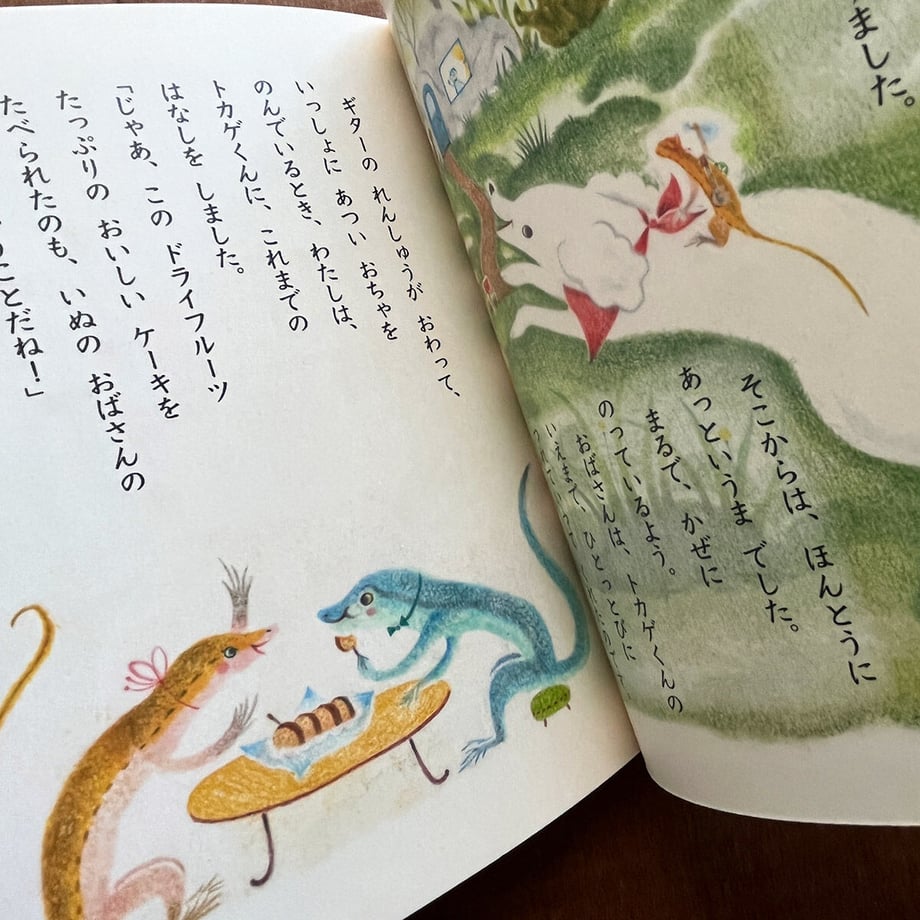 ました。
そこからは、ほんとうに
あっというま でした。
まるで、かぜに
のっているよう。
おばさんは、トカゲくんの
いえまで、ひとっとびに
ギターの れんしゅうが おわって、
いっしょに あつい おちゃを
のんでいるとき、わたしは、
トカゲくんに、これまでの
はなしを しました。
「じゃあ、この ドライフルーツ
たっぷりの おいしい ケーキを
たべられたのも、いぬの おばさんの
ことだね！」